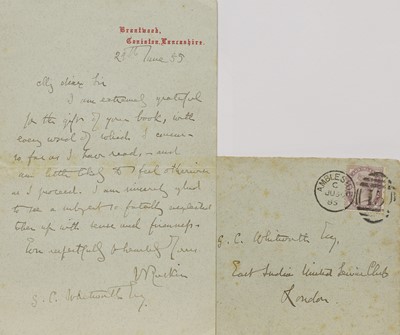 Brantwood,
Coniston, Lancashire.
29th June 85
My dear Sir
I am extremely grateful
for the gift of your book, with
every word of which I concur
so far as I have read, - and
am little likely to feel otherwise
as I proceed. I am sincerely glad
to see a subject so fatally neglected
taken up with sense and firmness.
Ever respectfully & heartily Yours
J Ruskin
G. C. Whitworth Esq
AMBLESIDE
C
85
G. C. Whitworth Esq
East India United Service Club
London